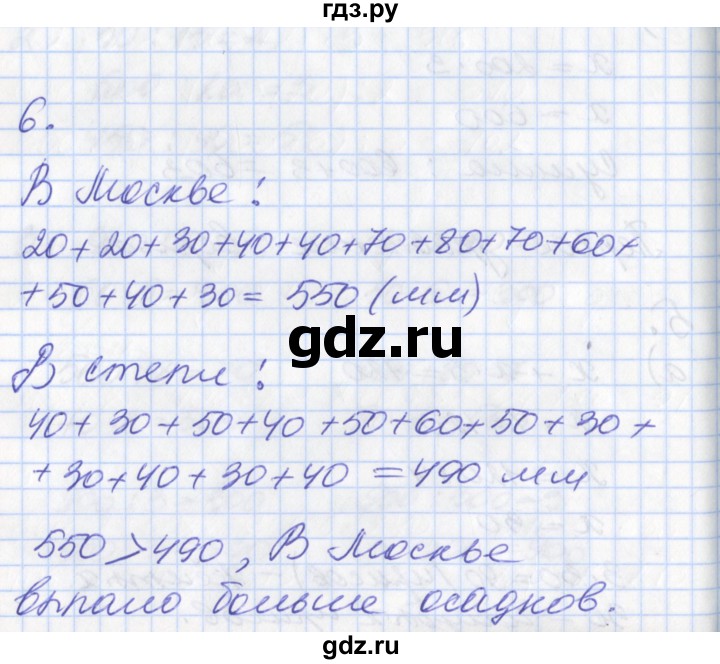 гдз.ру
6.
В Москве:
20+20+30+40+40+70+80+70+60+
+50+40+30= 550 (мм)
gdz.ru
В степи:
40+30+50+40+50+60+50+30+
+30+40+30+40 =490 мм
550>490, В Москве
выпало больше осадков.
gdz.ru